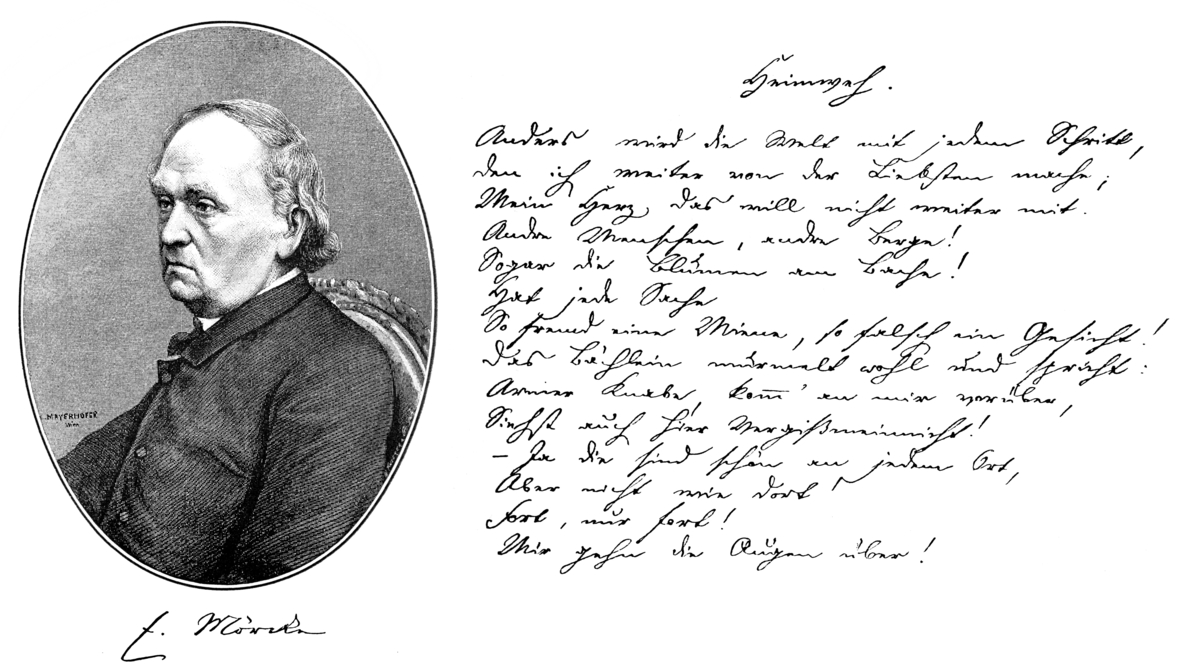 Heimweh.
Anders wird die Welt mit jedem Schritt,
den ich weiter von der Liebsten mache;
Mein Herz, das will nicht weiter mit.
Andre Menschen, andre Berge!
Sogar die Blumen am Bache!
Hat jede Sache
So fremd eine Miene, so falsch ein Gesicht!
Das Bächlein murmelt wohl und spricht:
Armer Knabe, kom̅' an mir vorüber,
Siehst auch hier Vergißmeinnicht!
– Ja die sind schön an jedem Ort,
Aber nicht wie dort!
Fort, nur fort!
Mir gehn die Augen über!
MAYERHOFER
E. Mörike